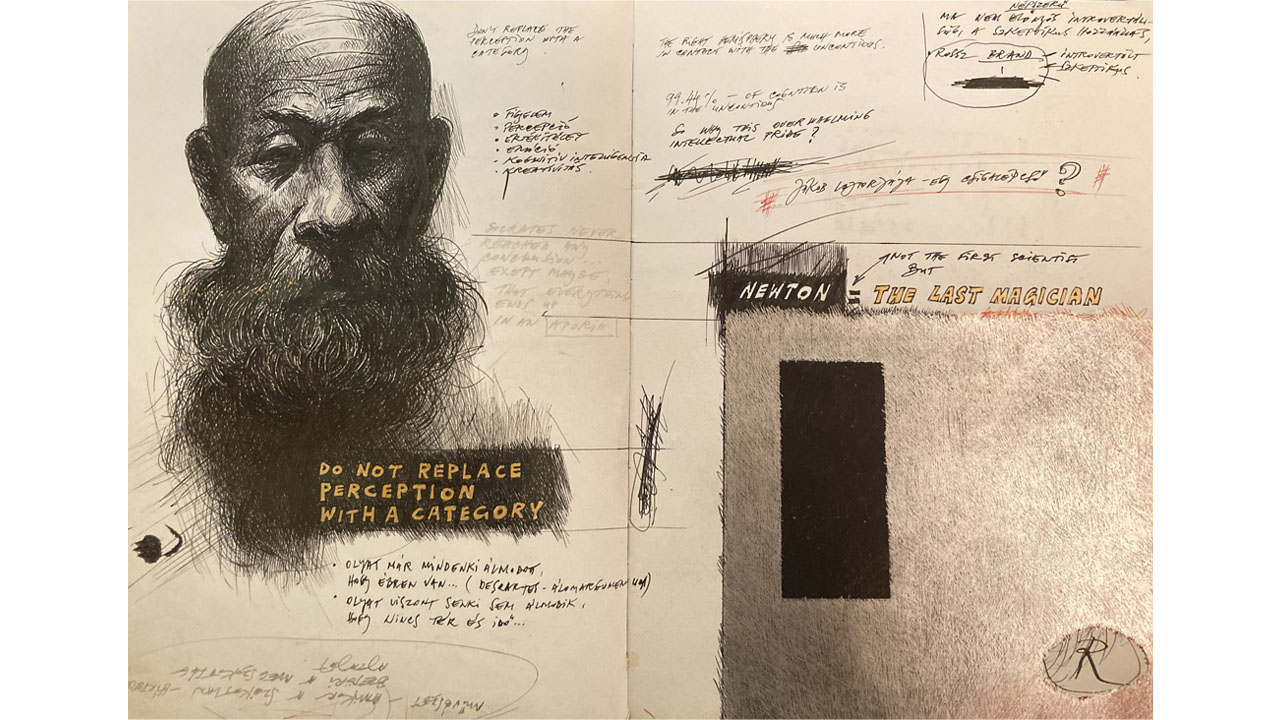 DON'T REPLACE THE
PERCEPTION WITH A
CATEGORY
• FIGYELEM
• PERCEPCIÓ
• ÉRTÉKÍTÉLET
• EMÓCIÓ
• KOGNITÍV INTELIGENCIA
• KREATIVITÁS
SOCRATES NEVER
REACHED ANY
CONCLUSION...
EXEPT MAYBE,
THAT EVERYTHING
ENDS UP
IN AN APORIA
DO NOT REPLACE
PERCEPTION
WITH A CATEGORY
• OLYAT MÁR MINDENKI ÁLMODOTT,
HOGY ÉBREN VAN... (DESCARTES - ÁLOMARGUMENTUM)
• OLYAT VISZONT SENKI SEM ÁLMODIK,
HOGY NINCS TÉR ÉS IDŐ...
MŰVÉSZET -
THE RIGHT HEMISPHERY IS MUCH MORE
IN CONTACT WITH THE UNCONTIOUS.
99.44% - OF COGNITION IS
IN THE UNCONTIOUS
SO WHY THIS OVERWHELMING
INTELLECTUAL PRIDE?
NÉPSZERŰ
MA NEM ELŐNYÖS INTROVERTÁLT-
A SZKEPTIKUS HOZZÁÁLLÁS,
ROSSZ BRAND - INTROVERTÁLT
SZKEPTIKUS.
# JÁKOB LAJTORJÁJA - EGY CSIGALÉPCSŐ? #
NOT THE FIRST SCIENTIST
BUT
NEWTON = THE LAST MAGICIAN
R